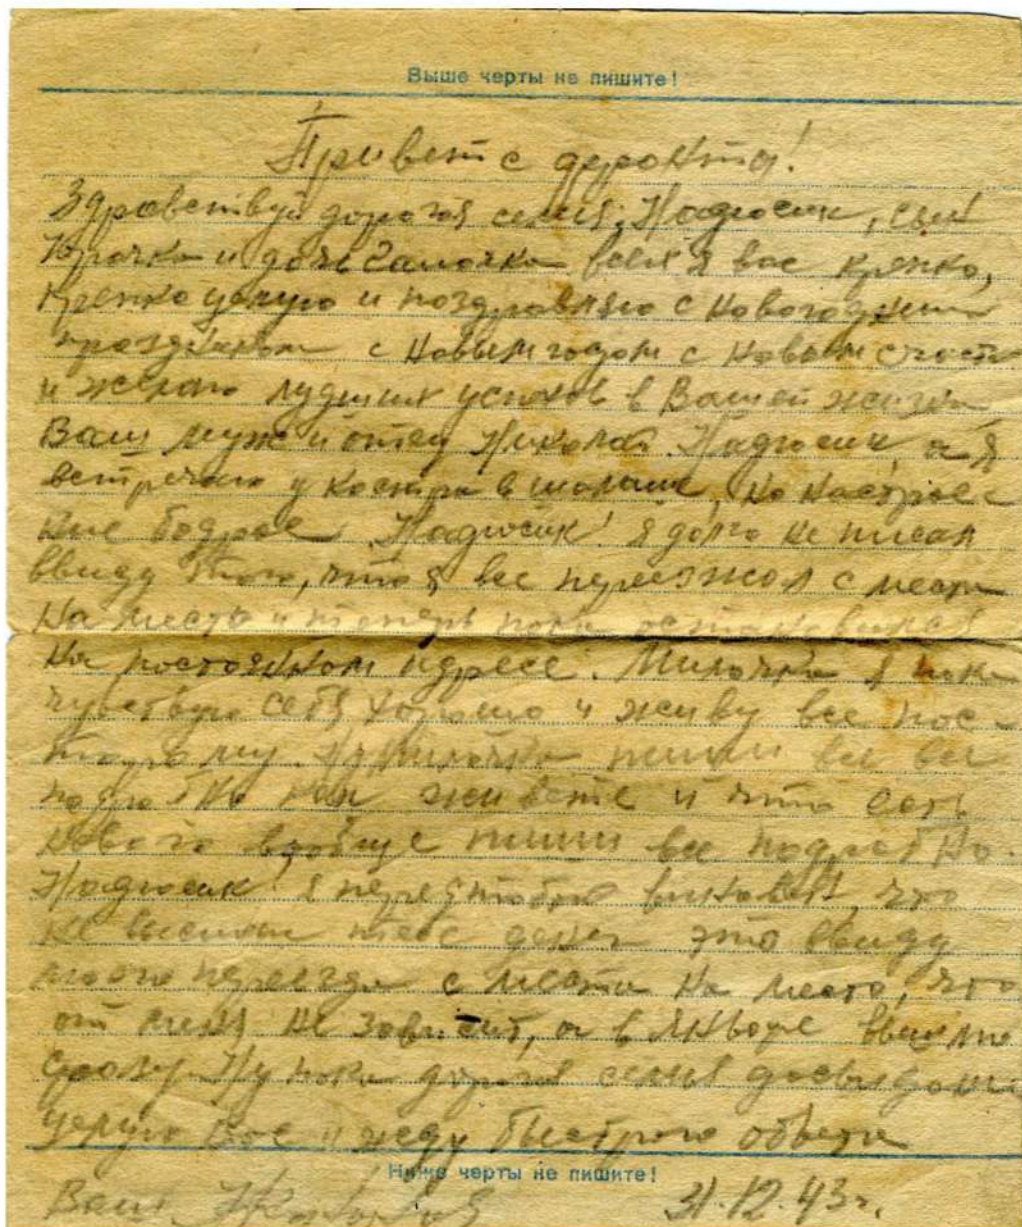 Выше черты не пишите!
Привет с фронта!
Здравствуй дорогая семья, Надюсик, сын
Юрочка и дочь Галочка всех я вас крепко,
крепко целую и поздравляю с новогодним
праздником с новым годом с новым счаст
и желаю лудших успехов в Вашей жизни
Ваш муж и отец Николай. Надюсик, а я
встречаю у костра в шалаше, но настрое
ние бодрое. Надюсик! я долго не писал
ввиду того, что я все переезжал с места
на место и теперь пока остановился
на постоянном адресе. Милочка я пока
чувствую себя хорошо и живу все
Ну Милочка пиши
подробно как живете и что есть
нового вообще пиши все подробно.
Надюсик! я перед тобою виноват, что
не выслал тебе денег это ввиду
моего переезда с места на место, что
от меня не зависит, а в январе вышлю
сразу. Ну пока дорогая семья досвидания
целую вас и жду быстрого ответа
Ниже черты не пишите!
Ваш 31.12.43г.